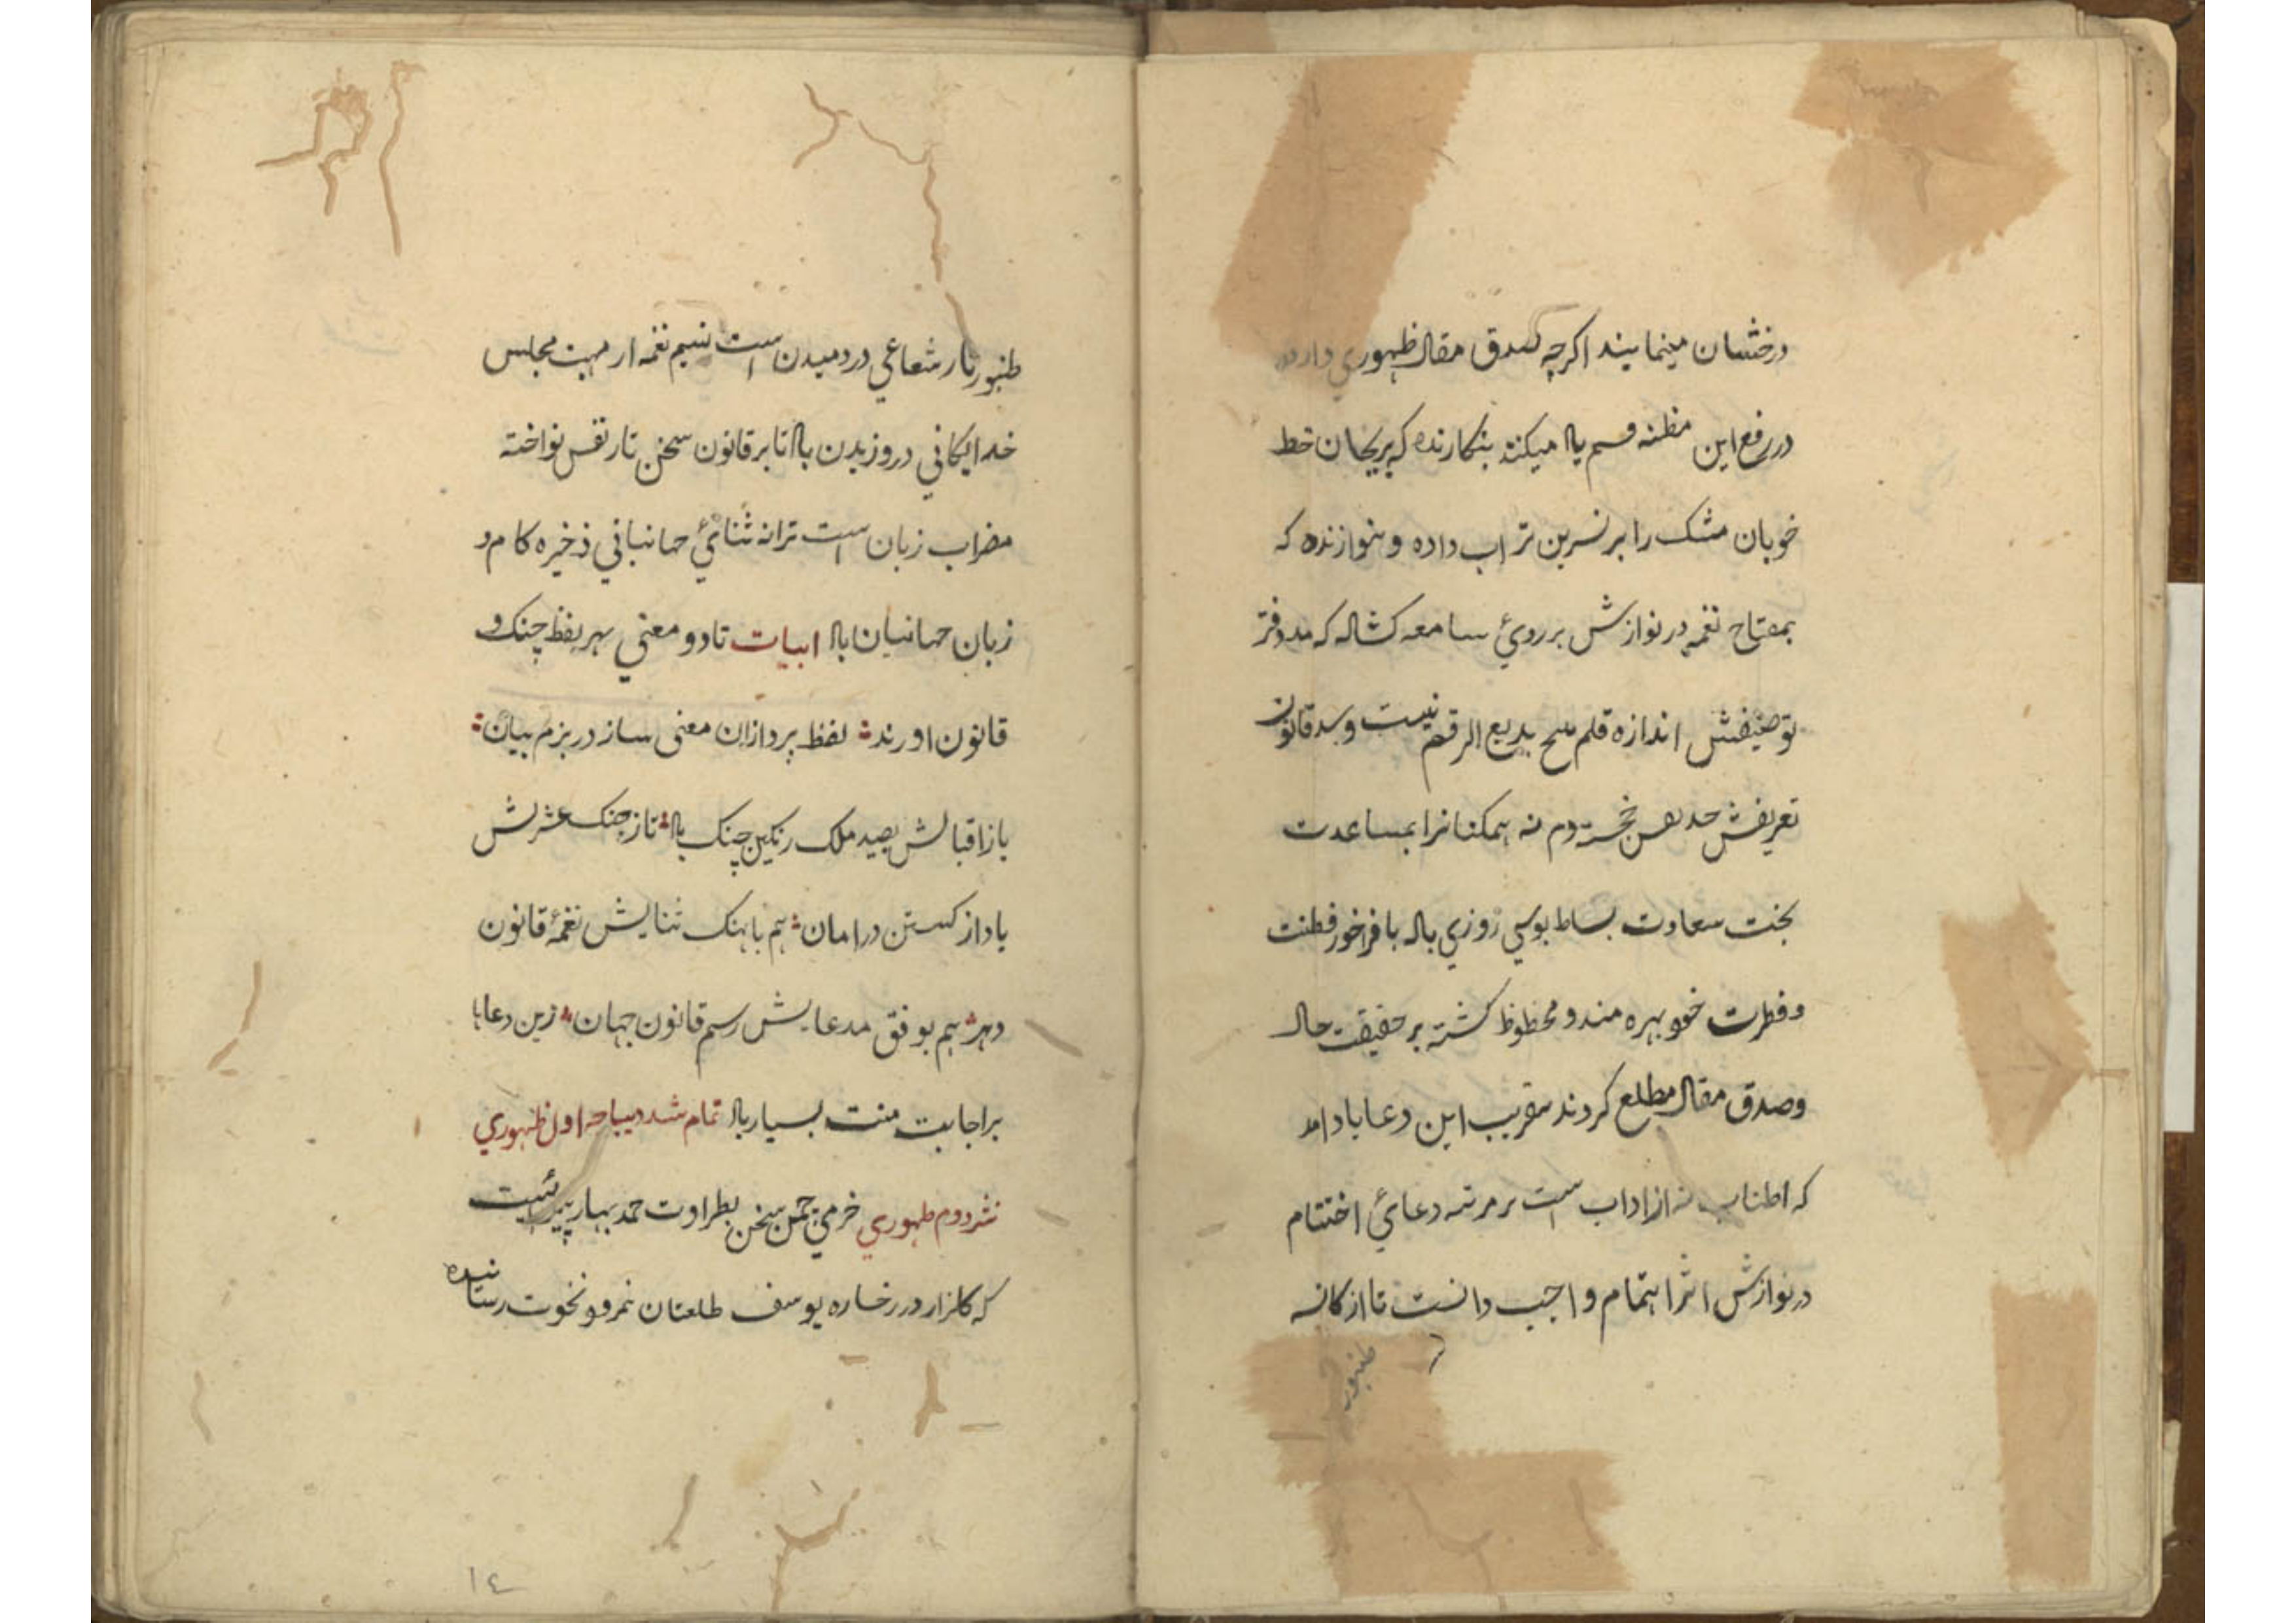 درخشان مینمایند اکرچه صدق مقال ظهوري دارد
در رفع این مظنه قسم یاد میکند بنکارنده که بریحان خط
خوبان مشک را بر نسرین تر اب داده و بنوازنده که
بمفتاح نغمه در نوازش بر روئ سامعه کشاده که مد دفتر
توصیفش اندازه قلم هیچ بدیع الرقم نیست و سد قانون
تعریفش حد نفس هیچ خجسته دم نه همکنانرا بمساعدت
بخت سعادت بساط بوسي روزي باد با فراخور فطنت
و فطرت خود بهره مند و محظوظ کشته بر حقیقت حال
وصدق مقال مطلع کردند بتقریب این دعا یاد امد
که اطناب نه از اداب است بر مرتبه دعائ اختتام
در نوازش اثر اهتمام واجب دانست تا از کاسه
طنبور
طنبور تار شعاعي در دمیدن است نسیم نغمه از مهب مجلس
خدایکاني در وزیدن باد تا بر قانون سخن تار نفس نواخته
مضراب زبان است ترانه ثنائ جهانباني ذخیره کام و
زبان جهانیان باد ابیات تا دو معني بهر لفظ چنک و
قانون اورند لفظ پردازان معنی ساز در بزم بیان
باز اقبالش بصید ملک رنکین چنک باد تا ز چنک عشرتش
یاد از کسستن در امان هم باهنک ثنایش نغمهٔ قانون
دهر هم بوفق مدعایش رسم قانون جهان زین دعاها
بر اجابت منت بسیار باد تمام شد دیباچه اول ظهوري
نثر دوم ظهوري خرمي چمن سخن بطراوت حمد بهار پیرائیست
که کلزار در رخساره یوسف طلعتان نمرود نخوت رسانیده
١٤